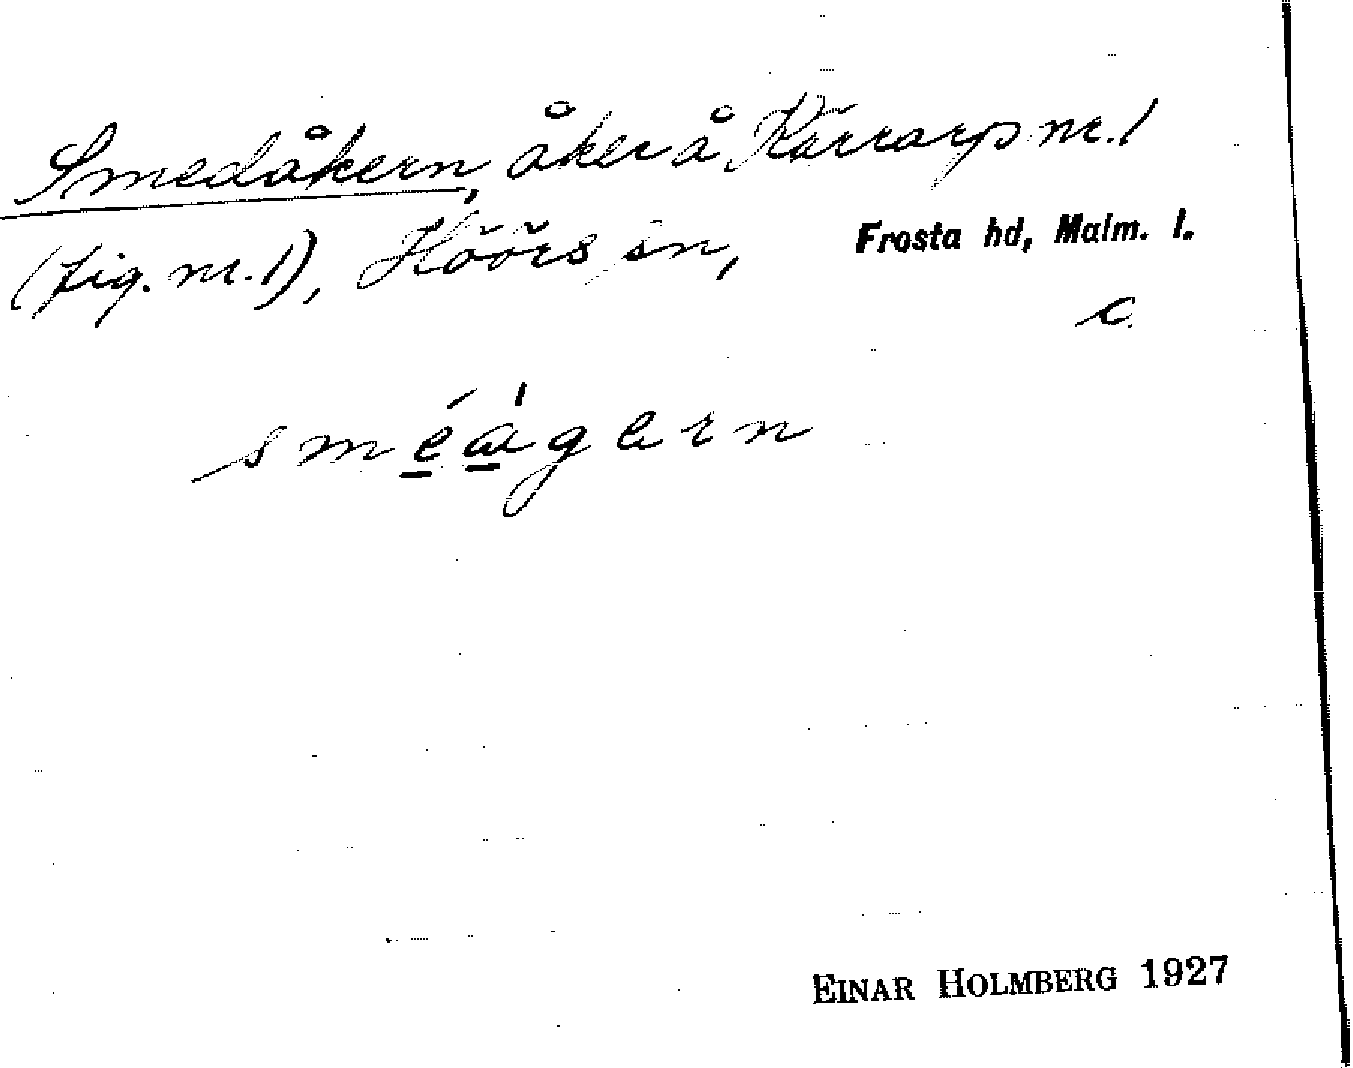 Smedåkern, åker å Kärrarp nr. 1
(fig. nr. 1), Höörs sn, Frosta hd, Malm. l.
c.
sméa̍gern
EINAR HOLMBERG 1927